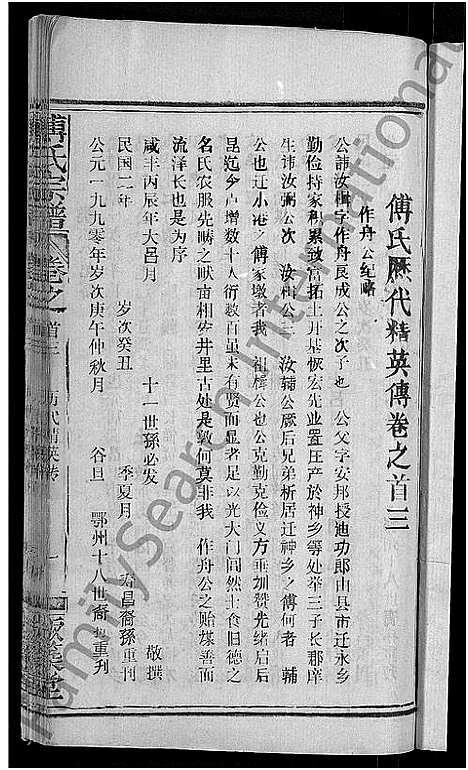 傅氏厯代精英傳卷之首三
作舟公纪略
公諱汝楫字作舟良成公之次子也 公父字安邦授迪功郎由县市迁永乡
勤俭持家积累致富拓土开基恢宏先业置庄产於神乡等处举三子长郡庠
生讳汝弼公次 汝楫公三 汝辅公厥后兄弟析居迁神乡之傅何者 辅
公也迁小港之傅家墩者我 祖楫公也公克勤克俭义方垂训赞先绪启后
昆迄今户增数十人衍数百虽未有贤而显者足以光大门闾然士食旧德之
名氏农服先畴之畎亩相安井里古处是敦何莫非我 作舟公之贻谋善而
流泽长也是为序
咸丰丙辰年大吕月 十一世孫必发 敬撰
民国二年 岁次癸丑 季夏月 裔孫重刊
公元一九九零年岁次庚午仲秋月 谷旦 鄂州十八世裔 重刊
傅氏宗譜 卷之首三 历代精英传 一
FamilySearch International